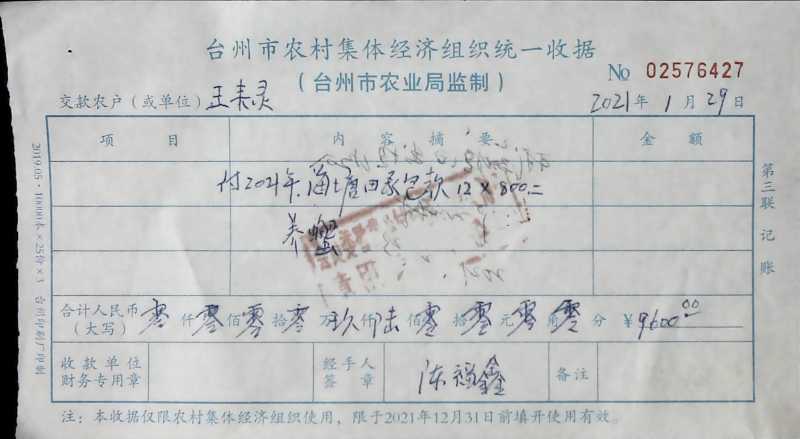 台州市农村集体经济组织统一收据
(台州市农业局监制)
No 02576427
交款农户(或单位) 王素灵
2021年1月29日
项目 内容摘要 金额
付2021年 塘田承包款12×800=
养
合计人民币(大写) 零仟零佰零拾零万玖仟陆佰零拾零元零角零分 ¥9600.00
收款单位财务专用章
经手人签章 陈 鑫
备注
注:本收据仅限农村集体经济组织使用,限于2021年12月31日前填开使用有效。
第三联 记账
2019.05·10000本×25份×3 台州印刷厂印制